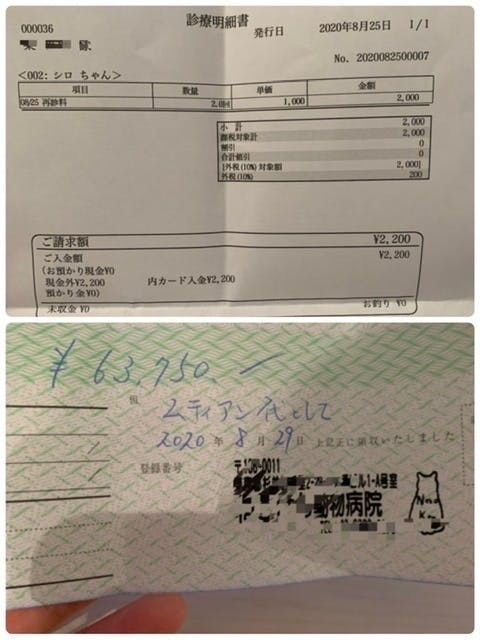 診療明細書
000036
発行日 2020年8月25日 1/1
様
No. 2020082500007
<002: シロ ちゃん>
項目 数量 単価 金額
08/25 再診料 2.0 1,000 2,000
小 計 2,000
課税対象計 2,000
割引 0
合計値引 0
[外税(10%)対象額 2,000]
外税(10%) 200
ご請求額 ¥2,200
ご入金額 ¥2,200
(お預かり現金¥0
現金外¥2,200 内カード入金¥2,200
預かり金¥0)
未収金 ¥0 お釣り ¥0
¥63,750.-
但 ムティアン代として
2020年8月29日 上記正に領収いたしました
登録番号
号室
動物病院
TEL